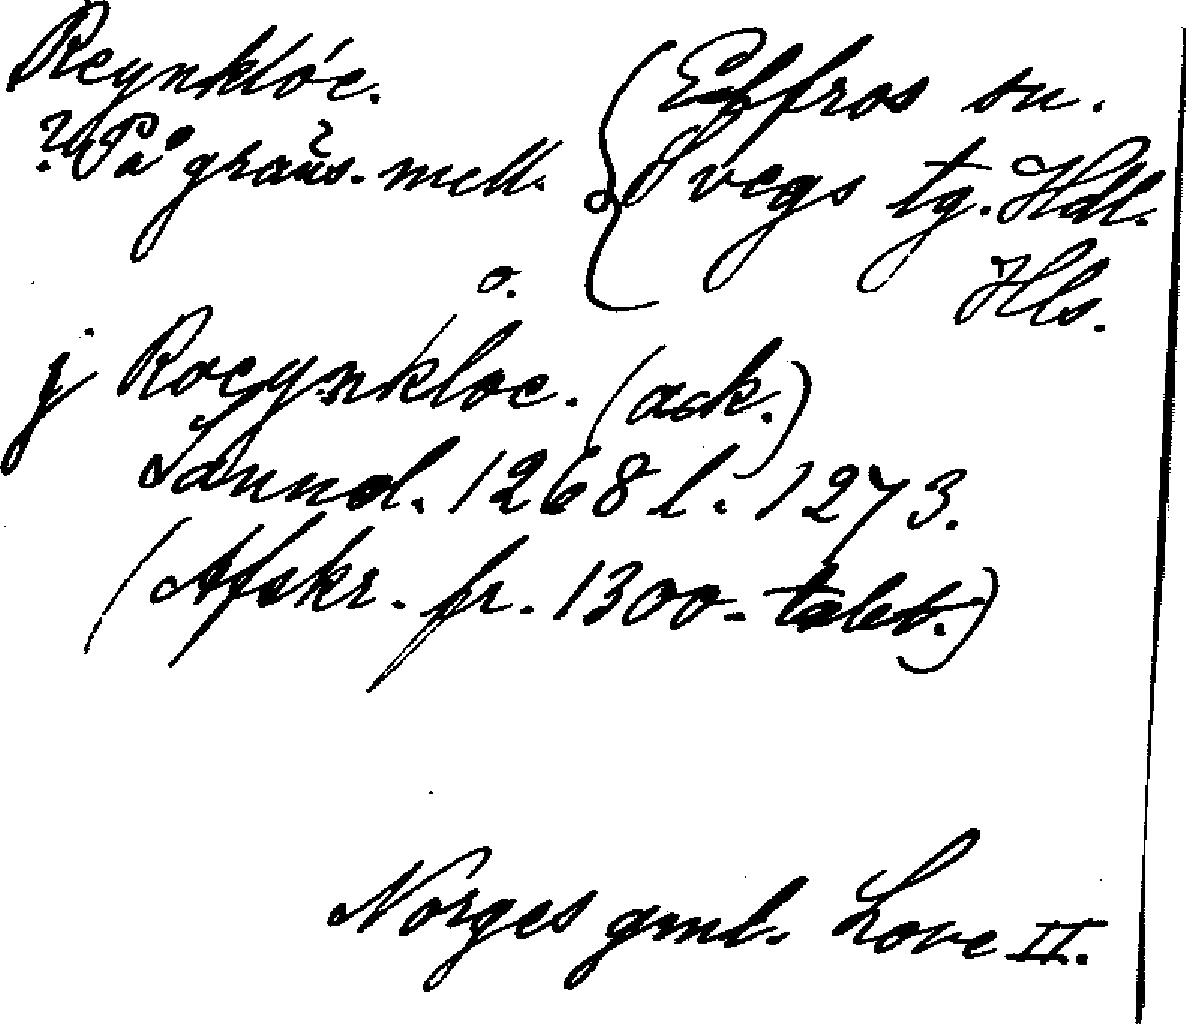 Reynklóe.
? På gräns. mell. { Effros sn.
vegs tg. Hdl.
o. Hls.
j Roeynkloe. (ack.)
Jämnd. 1268 l. 1273.
(Afskr. fr. 1300-talet.)
Norges gml. Love II.